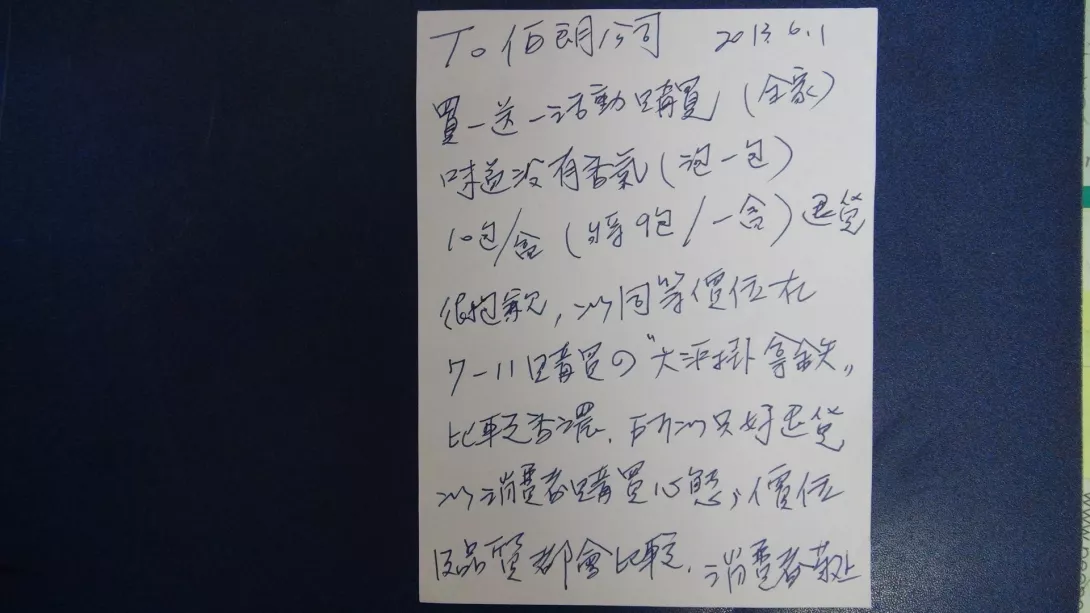 To 伯朗公司 2013.6.1
買一送一活動購買(全家)
味道沒有香氣(泡一包)
10包/盒(將9包/一盒)退貨
很抱歉,以同等價位在
7-11購買の"大平掛拿鐵"
比較香濃.所以只好退貨
以消費者購買心態,價位
及品質都會比較.消費者